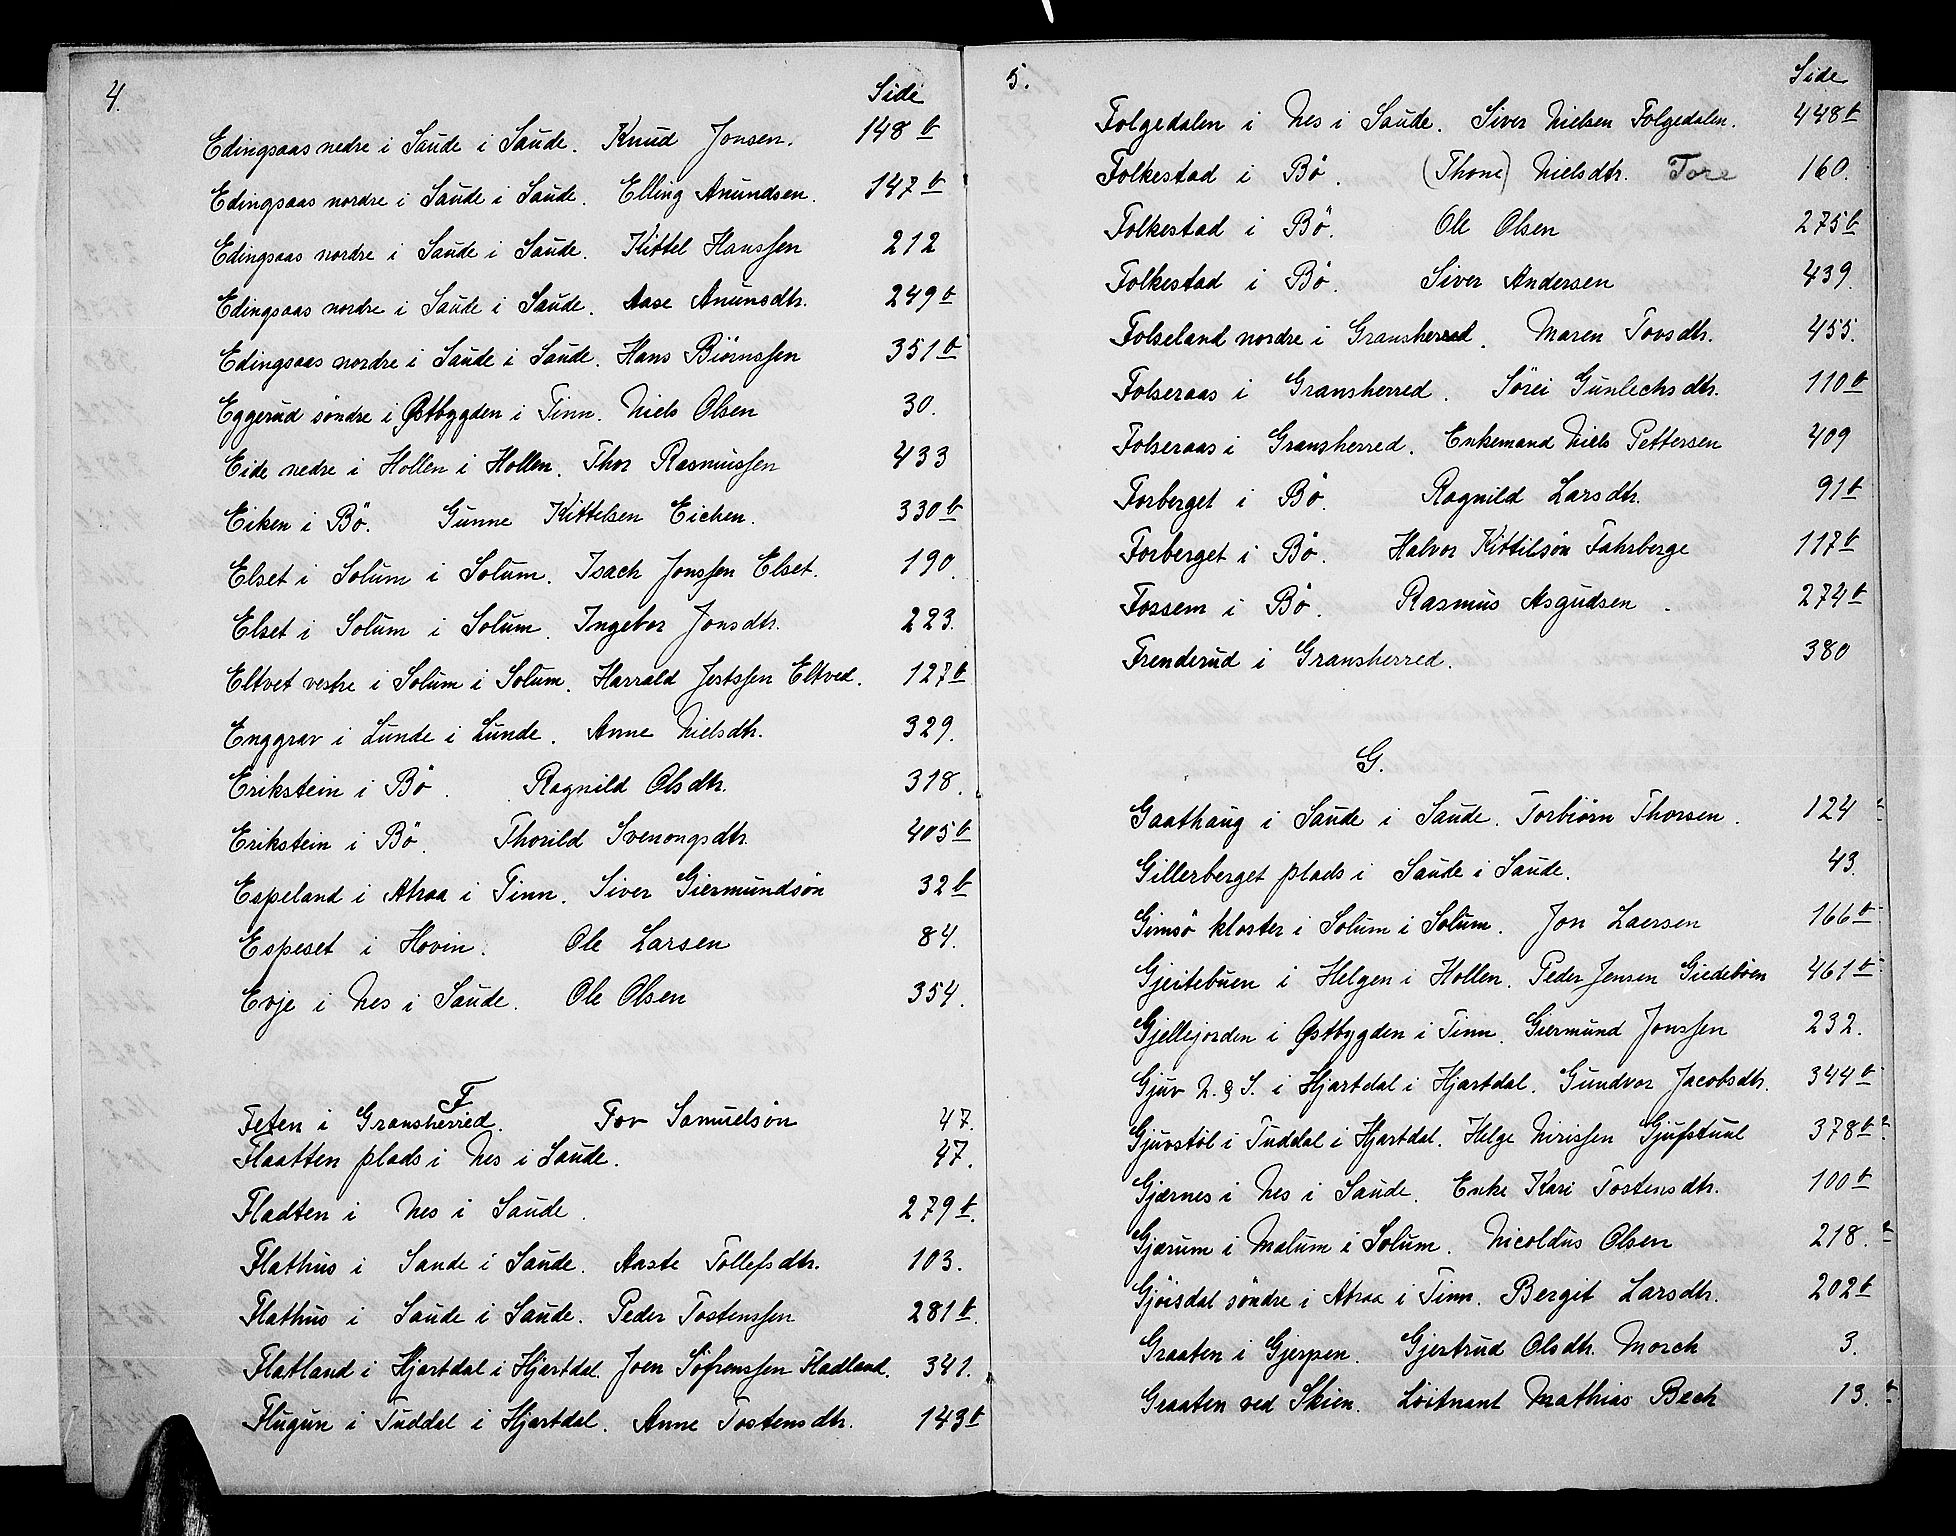 4.
Side
Edingsaas nedre i Saude i Saude. Knud Jonsen. 148 b
Edingsaas nordre i Saude i Saude. Elling Anundsen. 147 b
Edingsaas nordre i Saude i Saude. Kittel Hanssen 212
Edingsaas nordre i Saude i Saude. Aase Anunsdtr. 249 b
Edingsaas nordre i Saude i Saude. Hans Biørnssen 351 b
Eggerud söndre i Østbygden i Tinn. Niels Olsen 30.
Eide nedre i Hollen i Hollen. Thor Rasmussen 433
Eiken i Bö. Gunne Kittelsen Eichen. 330 b
Elset i Solum i Solum. Isach Jonssen Elset. 190.
Elset i Solum i Solum. Ingebor Jonsdtr. 223.
Eltvet vestre i Solum i Solum. Harrald Jertssen Eltved. 127 b
Enggrav i Lunde i Lunde. Anne Nielsdtr. 329.
Erikstein i Bö. Ragnild Olsdtr. 318.
Erikstein i Bö. Thorild Svenongsdtr. 405 b
Espeland i Atraa i Tinn. Siver Giermundsön 32 b
Espeset i Hovin. Ole Larsen 84.
Evje i Nes i Saude. Ole Olsen 354.
F
Feten i Gransherred. Tov Samuelsön 47.
Flaatten plads i Nes i Saude. 47.
Fladten i Nes i Saude. 279 b.
Flathus i Saude i Saude. Aaste Tollefsdtr. 103.
Flathus i Saude i Saude. Peder Tostenssen 281 b.
Flatland i Hjartdal i Hjartdal. Joen Söfrenssen Fladland. 341.
Flugun i Tuddal i Hjartdal. Anne Tostensdtr. 143 b
5.
Side
Folgedalen i Nes i Saude. Siver Nielsen Folgedalen. 448 b
Folkestad i Bö. (Thone) Nielsdtr. Tore 160.
Folkestad i Bö. Ole Olsen 275 b
Folkestad i Bö. Siver Andersen 439.
Folseland nordre i Gransherred. Maren Tovsdtr. 455.
Folseraas i Gransherred. Sörei Gunlechsdtr. 110 b
Folseraas i Gransherred. Enkemand Niels Pettersen 409
Forberget i Bö. Ragnild Larsdtr. 91 b
Forberget i Bö. Halvor Kittilsön Fahrberge 117 b
Fossem i Bö. Rasmus Asgudsen. 274 b
Frenderud i Gransherred. 380
G.
Gaathaug i Saude i Saude. Torbiørn Thorsen. 124
Gillerberget plads i Saude i Saude. 43.
Gimsö kloster i Solum i Solum. Jon Laersen 166 b
Gjeitebuen i Helgen i Hollen. Peder Jensen Giedebøen 461 b
Gjellejorden i Østbygden i Tinn. Giermund Jonssen 232.
Gjuv N. & S. i Hjartdal i Hjartdal. Gundvor Jacobsdtr. 344 b
Gjuvstöl i Tuddal i Hjartdal. Helge Nirissen Gjufstuul 378 b
Gjærnes i Nes i Saude. Enke Kari Tostensdtr. 100 b
Gjærum i Malum i Solum. Nicoldus Olsen 218.
Gjöisdal söndre i Atraa i Tinn. Bergit Larsdtr. 202 b
Graaten i Gjerpen. Gjertrud Olsdtr. Morch 3.
Graaten ved Skien. Löitnant Mathias Bech 13.